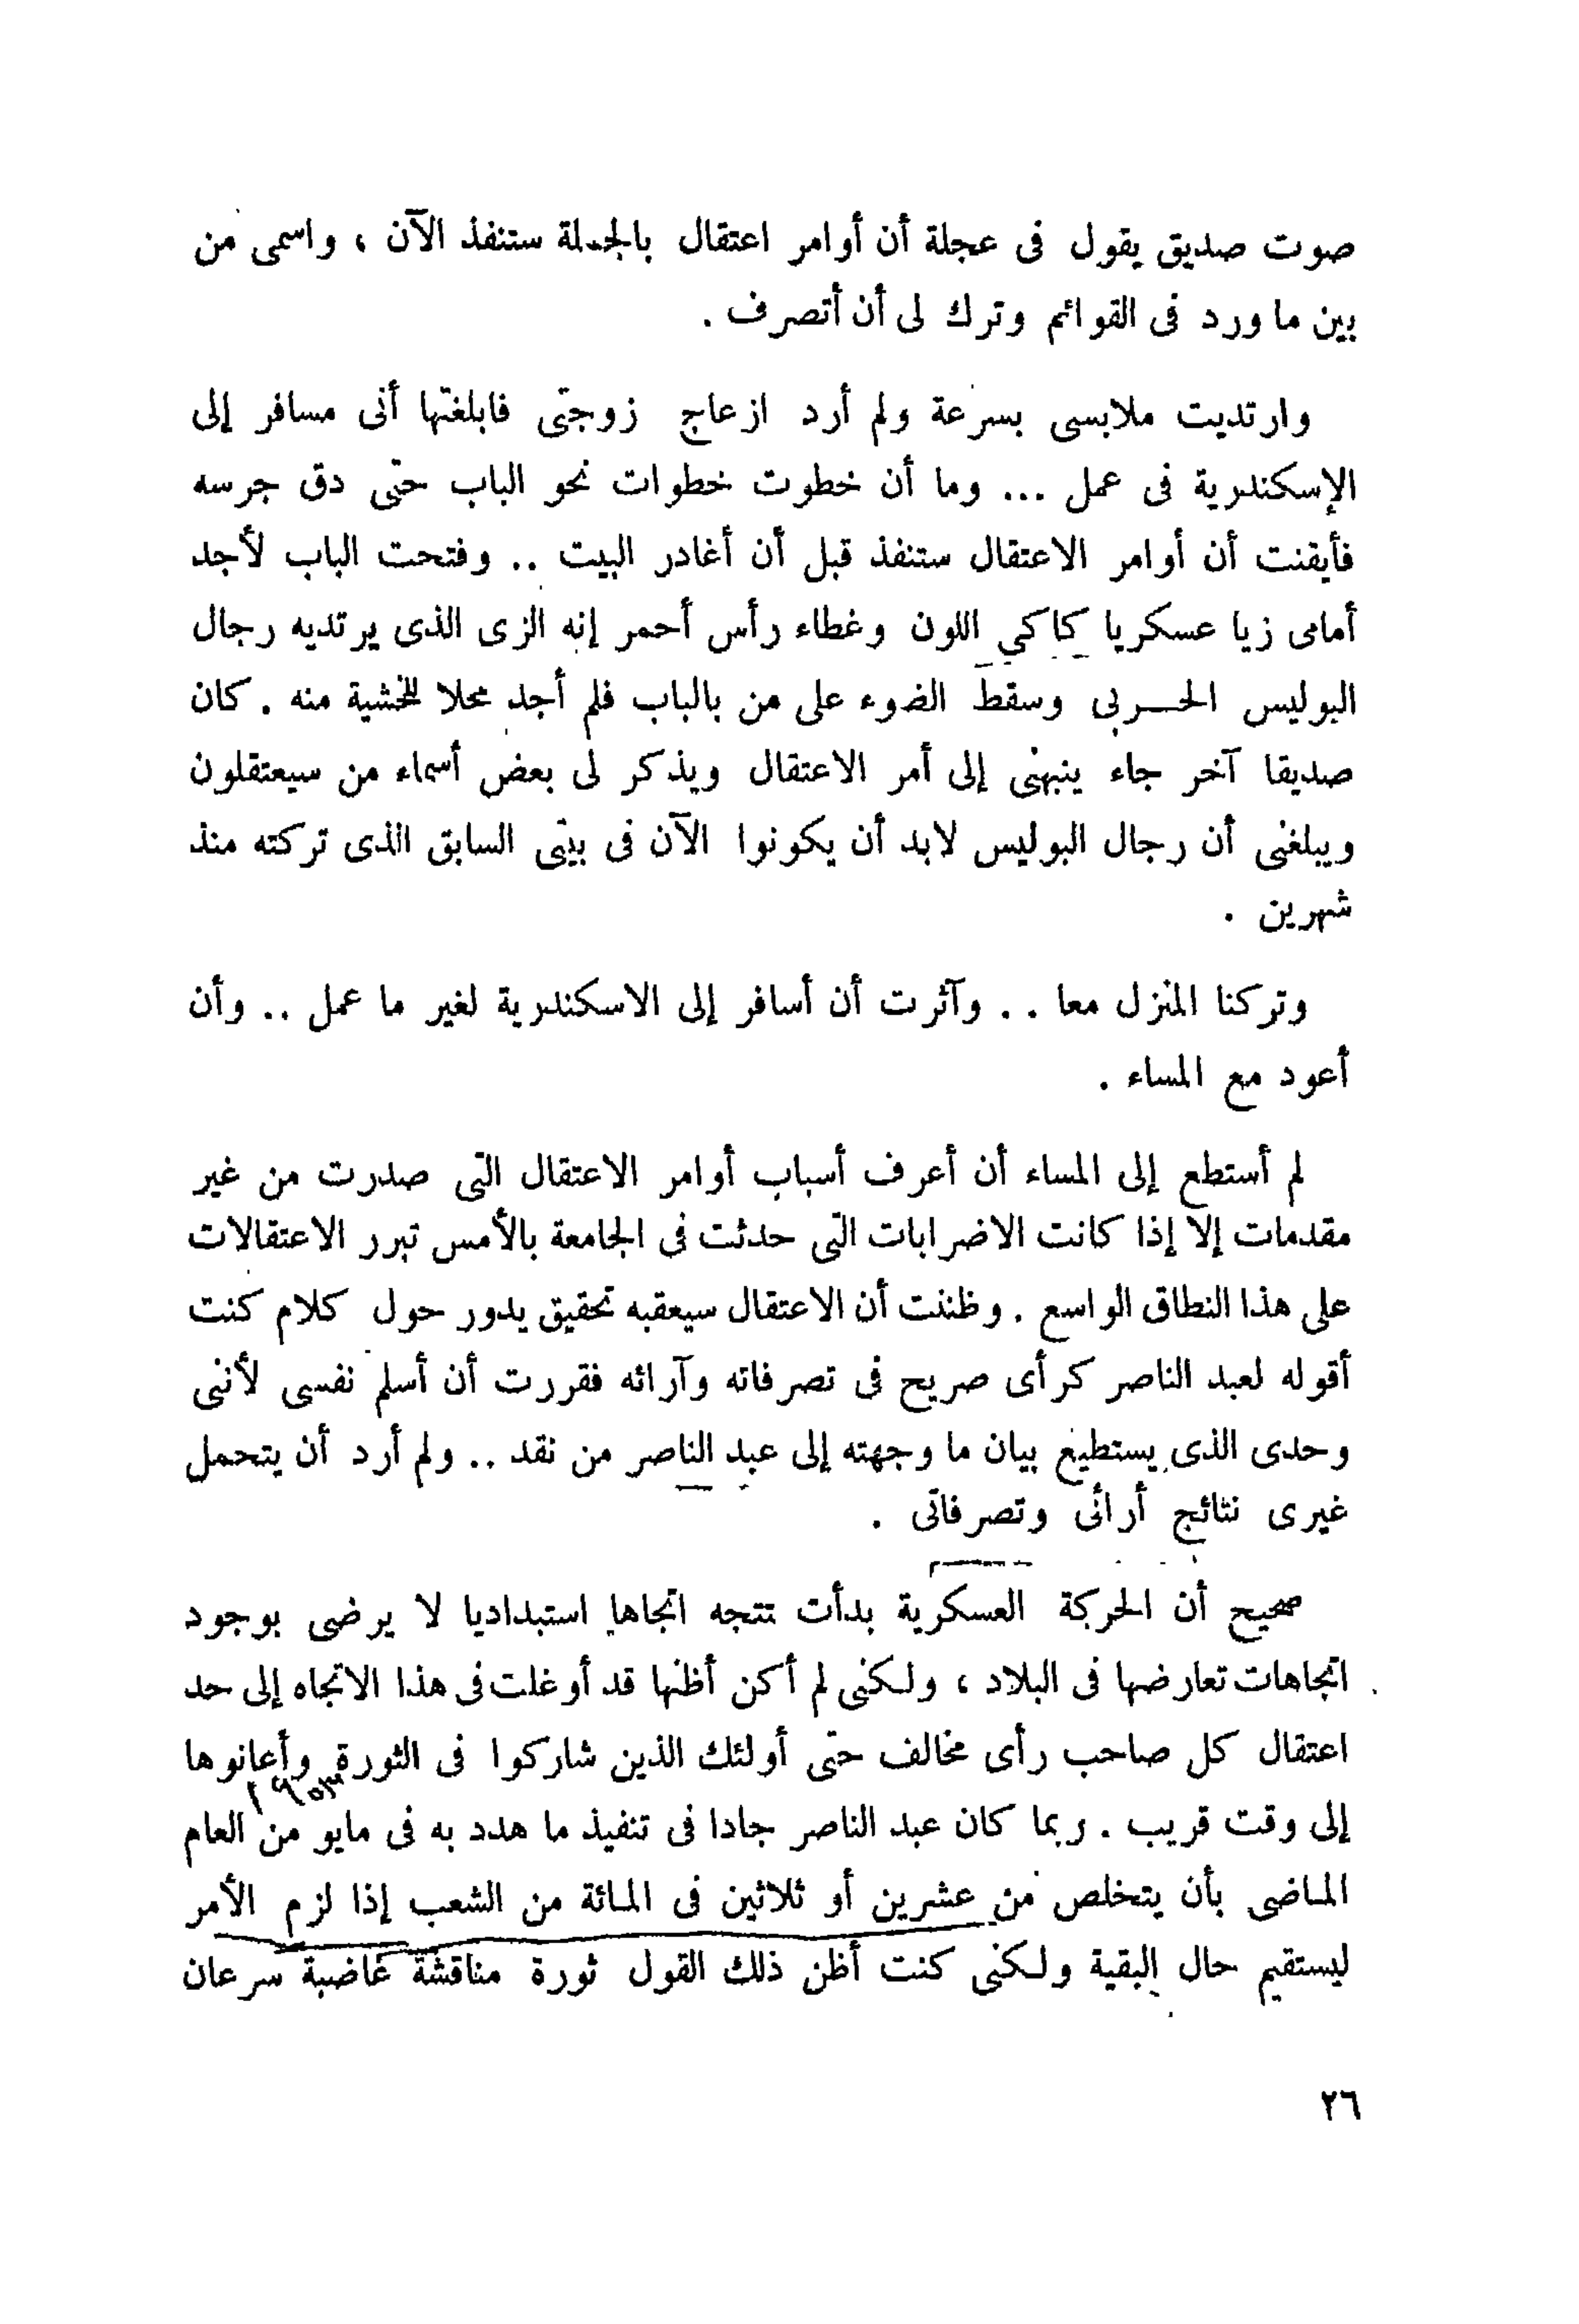 صوت صديق يقول فى عجلة أن أوامر اعتقال بالجملة ستنفذ الآن ، واسمى من
بين ما ورد فى القوائم وترك لى أن أتصرف .
وارتديت ملابسى بسرعة ولم أرد ازعاج زوجتى فابلغتها أنى مسافر إلى
الإسكندرية فى عمل ... وما أن خطوت خطوات نحو الباب حتى دق جرسه
فأيقنت أن أوامر الاعتقال ستنفذ قبل أن أغادر البيت .. وفتحت الباب لأجد
أمامى زيا عسكريا كاكي اللون وغطاء رأس أحمر إنه الزى الذى يرتديه رجال
البوليس الحربى وسقط الضوء على من بالباب فلم أجد محلا للخشية منه . كان
صديقا آخر جاء ينبهنى إلى أمر الاعتقال ويذكر لى بعض أسماء من سيعتقلون
ويبلغنى أن رجال البوليس لابد أن يكونوا الآن فى بيتى السابق الذى تركته منذ
شهرين .
وتركنا المنزل معا .. وآثرت أن أسافر إلى الاسكندرية لغير ما عمل .. وأن
أعود مع المساء .
لم أستطع إلى المساء أن أعرف أسباب أوامر الاعتقال التى صدرت من غير
مقدمات إلا إذا كانت الاضرابات التى حدثت فى الجامعة بالأمس تبرر الاعتقالات
على هذا النطاق الواسع . وظننت أن الاعتقال سيعقبه تحقيق يدور حول كلام كنت
أقوله لعبد الناصر كرأى صريح فى تصرفاته وآرائه فقررت أن أسلم نفسى لأننى
وحدى الذى يستطيع بيان ما وجهته إلى عبد الناصر من نقد .. ولم أرد أن يتحمل
غيرى نتائج أرائى وتصرفاتى .
صحيح أن الحركة العسكرية بدأت تتجه اتجاها استبداديا لا يرضى بوجود
اتجاهات تعارضها فى البلاد ، ولكنى لم أكن أظنها قد أوغلت فى هذا الاتجاه إلى حد
اعتقال كل صاحب رأى مخالف حتى أولئك الذين شاركوا فى الثورة وأعانوها
١٩٥٣
إلى وقت قريب . ربما كان عبد الناصر جادا فى تنفيذ ما هدد به فى مايو من العام
الماضى بأن يتخلص من عشرين أو ثلاثين فى المائة من الشعب إذا لزم الأمر
ليستقيم حال البقية ولكنى كنت أظن ذلك القول ثورة مناقشة غاضبة سرعان
٢٦